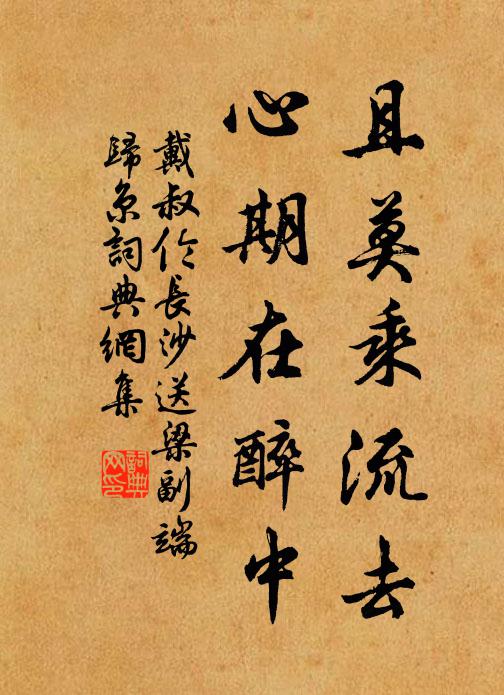 且莫乘流去
心期在醉中
戴叔伦長沙送梁副端
歸京詞典網集
詞典网印